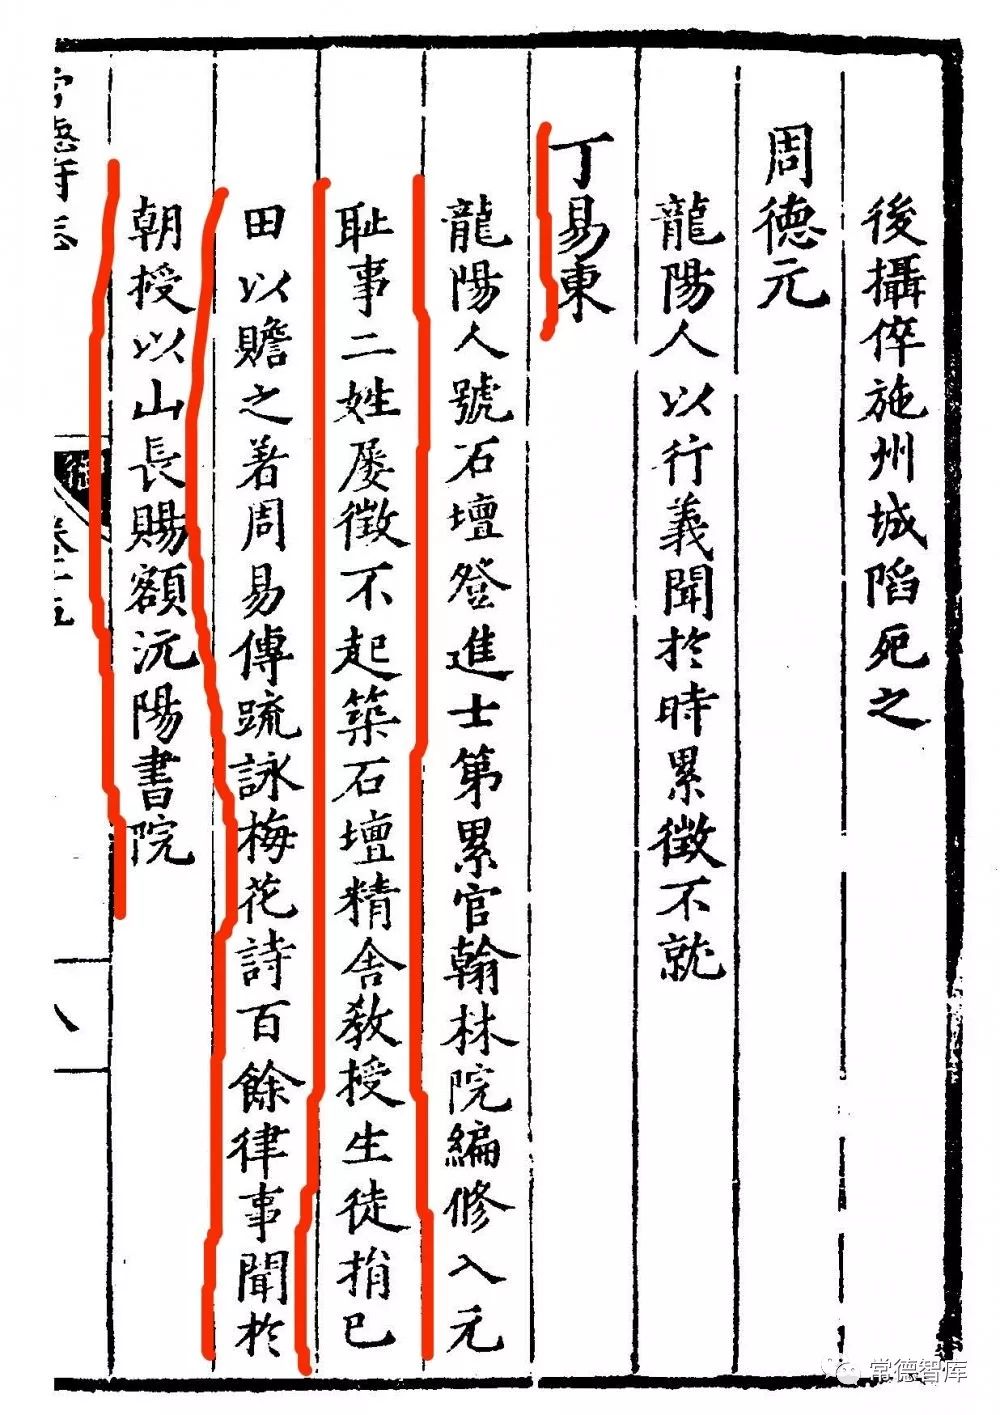 後攝倅施州城陷死之
周德元
龍陽人以行義聞於時累徵不就
丁易東
龍陽人號石壇登進士第累官翰林院編修入元
耻事二姓屡徵不起築石壇精舍教授生徒捐己
田以贍之著周易傳疏詠梅花詩百餘律事聞於
朝授以山長賜額沅陽書院
常德府志
卷十五
八
常德智库